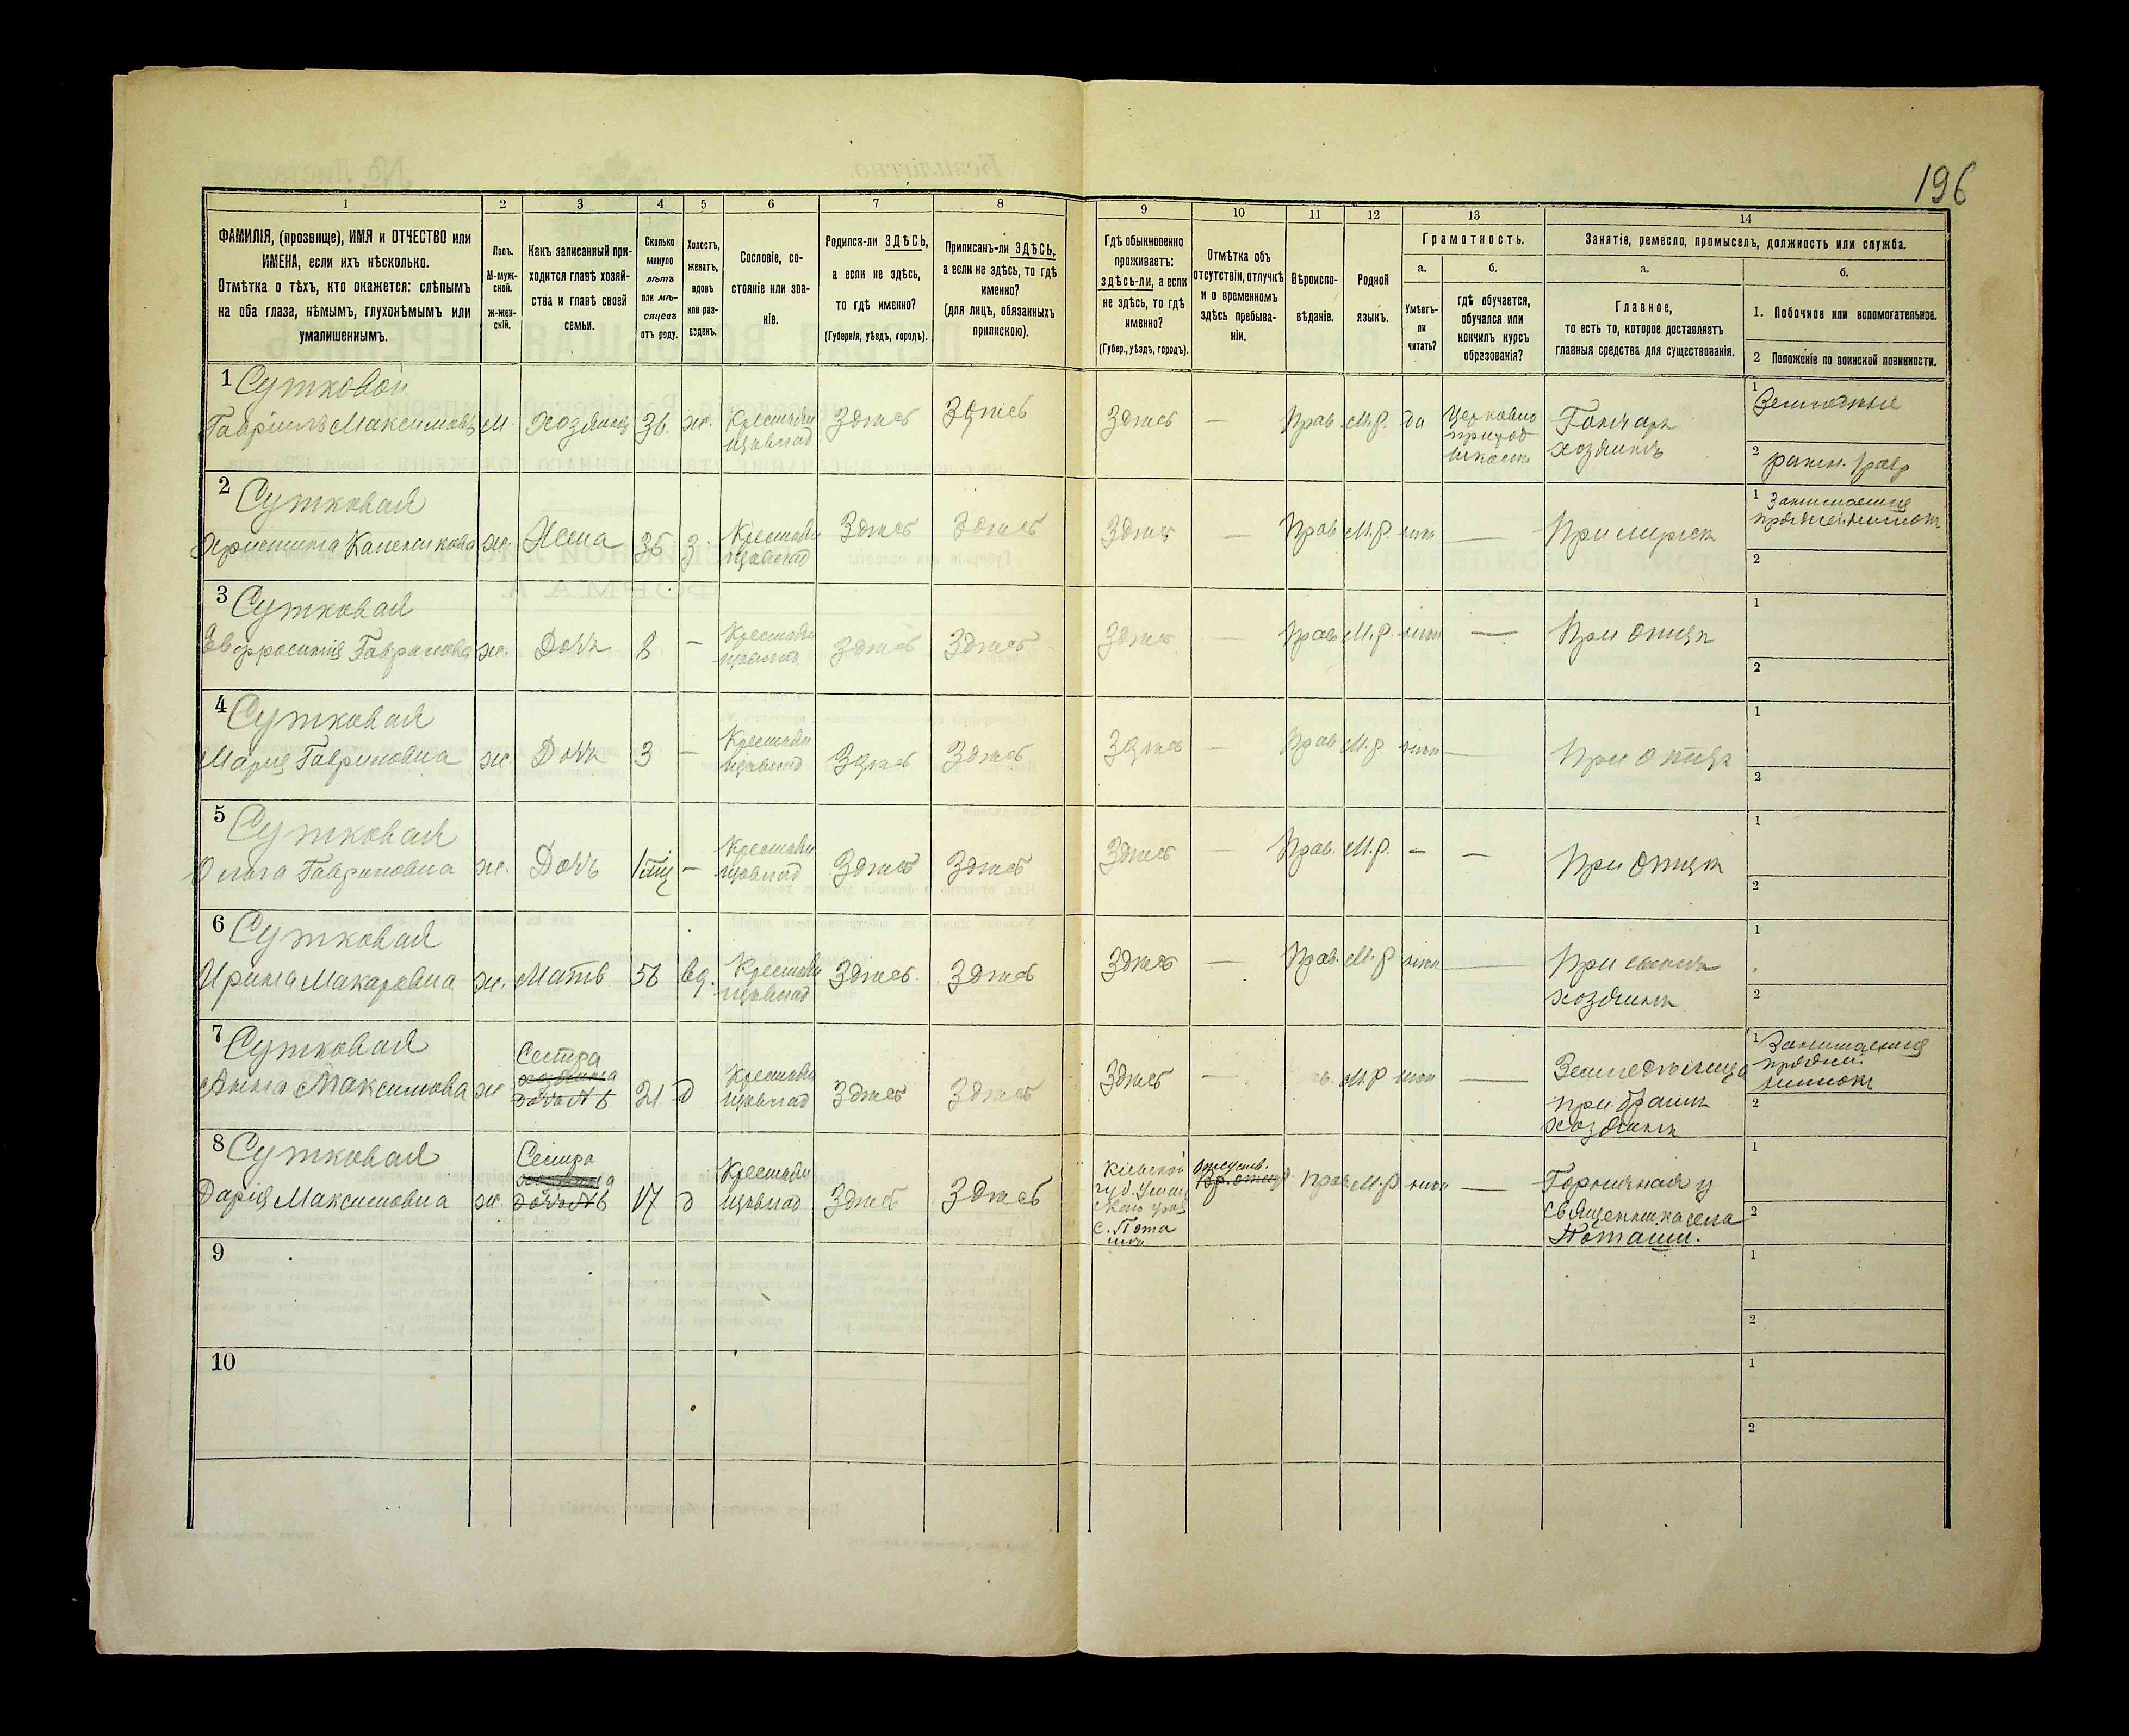 196
1
2
3
4
5
6
7
8
9
10
11
12
13
14
ФАМИЛІЯ, (прозвище), ИМЯ и ОТЧЕСТВО или
ИМЕНА, если ихъ нѣсколько.
Отмѣтка о тѣхъ, кто окажется: слѣпымъ
на оба глаза, нѣмымъ, глухонѣмымъ или
умалишеннымъ.
Полъ.
М-муж-
ской.
ж-жен-
скій.
Какъ записанный при-
ходится главѣ хозяй-
ства и главѣ своей
семьи.
Сколько
минуло
лѣтъ
или мѣ-
сяцевъ
отъ роду.
Холостъ,
женатъ,
вдовъ
или раз-
веденъ.
Сословіе, со-
стояніе или зва-
ніе.
Родился-ли ЗДѢСЬ,
а если не здѣсь,
то гдѣ именно?
(Губернія, уѣздъ, городъ).
Приписанъ-ли ЗДѢСЬ,
а если не здѣсь, то гдѣ
именно?
(для лицъ, обязанныхъ
припискою).
Гдѣ обыкновенно
проживаетъ:
здѣсь-ли, а если
не здѣсь, то гдѣ
именно?
(Губер., уѣздъ, городъ).
Отмѣтка объ
отсутствіи, отлучкѣ
и о временномъ
здѣсь пребыва-
ніи.
Вѣроиспо-
вѣданіе.
Родной
языкъ.
Грамотность.
а.
Умѣетъ-
ли
читать?
б.
гдѣ обучается,
обучался или
кончилъ курсъ
образованія?
Занятіе, ремесло, промыселъ, должность или служба.
а.
Главное,
то есть то, которое доставляетъ
главныя средства для существованія.
б.
1. Побочное или вспомогательное.
2 Положеніе по воинской повинности.
1 Сутковой
Гавріилъ Максимовъ М. Хозяинъ 36. ж. Крестьян Здѣсь Здѣсь Здѣсь — Прав. М.Р. да Церковно Гончаръ
приход хозяинъ
1
2
2 Сутковая
ж. Жена 35 з. Крестьян Здѣсь Здѣсь Здѣсь — Прав М.Р. —
1 Занимается
2
3 Сутковая
Евфросинія Гаврилова ж. Дочь 8 — Крестьян Здѣсь Здѣсь Здѣсь — Прав М.Р. — При отцѣ
1
2
4 Сутковая
Марія Гавриловна ж. Дочь 3 — Крестьян Здѣсь Здѣсь Здѣсь — Прав М.Р. — При отцѣ
1
2
5 Сутковая
Ольга Гавриловна ж. Дочь — Крестьян Здѣсь Здѣсь Здѣсь — Прав. М.Р. — — При отцѣ
1
2
6 Сутковая
Ирина Макаровна ж. Мать вд. Крестьян Здѣсь Здѣсь Здѣсь — Прав. М.Р — При сынѣ
хозяинѣ
1
2
7 Сутковая
Анна Максимова ж Сестра 21 д Крестьян Здѣсь Здѣсь Здѣсь — М.Р —
при братѣ
хозяинѣ
1 Занимается
пряжей
2
8 Сутковая
Дарія Максимовна ж. Сестра 17 д Крестьян Здѣсь Здѣсь Кіевской
губ. Уман
с. Пота
Прав М.Р — Горничная у
священника села
Поташи.
1
2
9
1
2
10
1
2